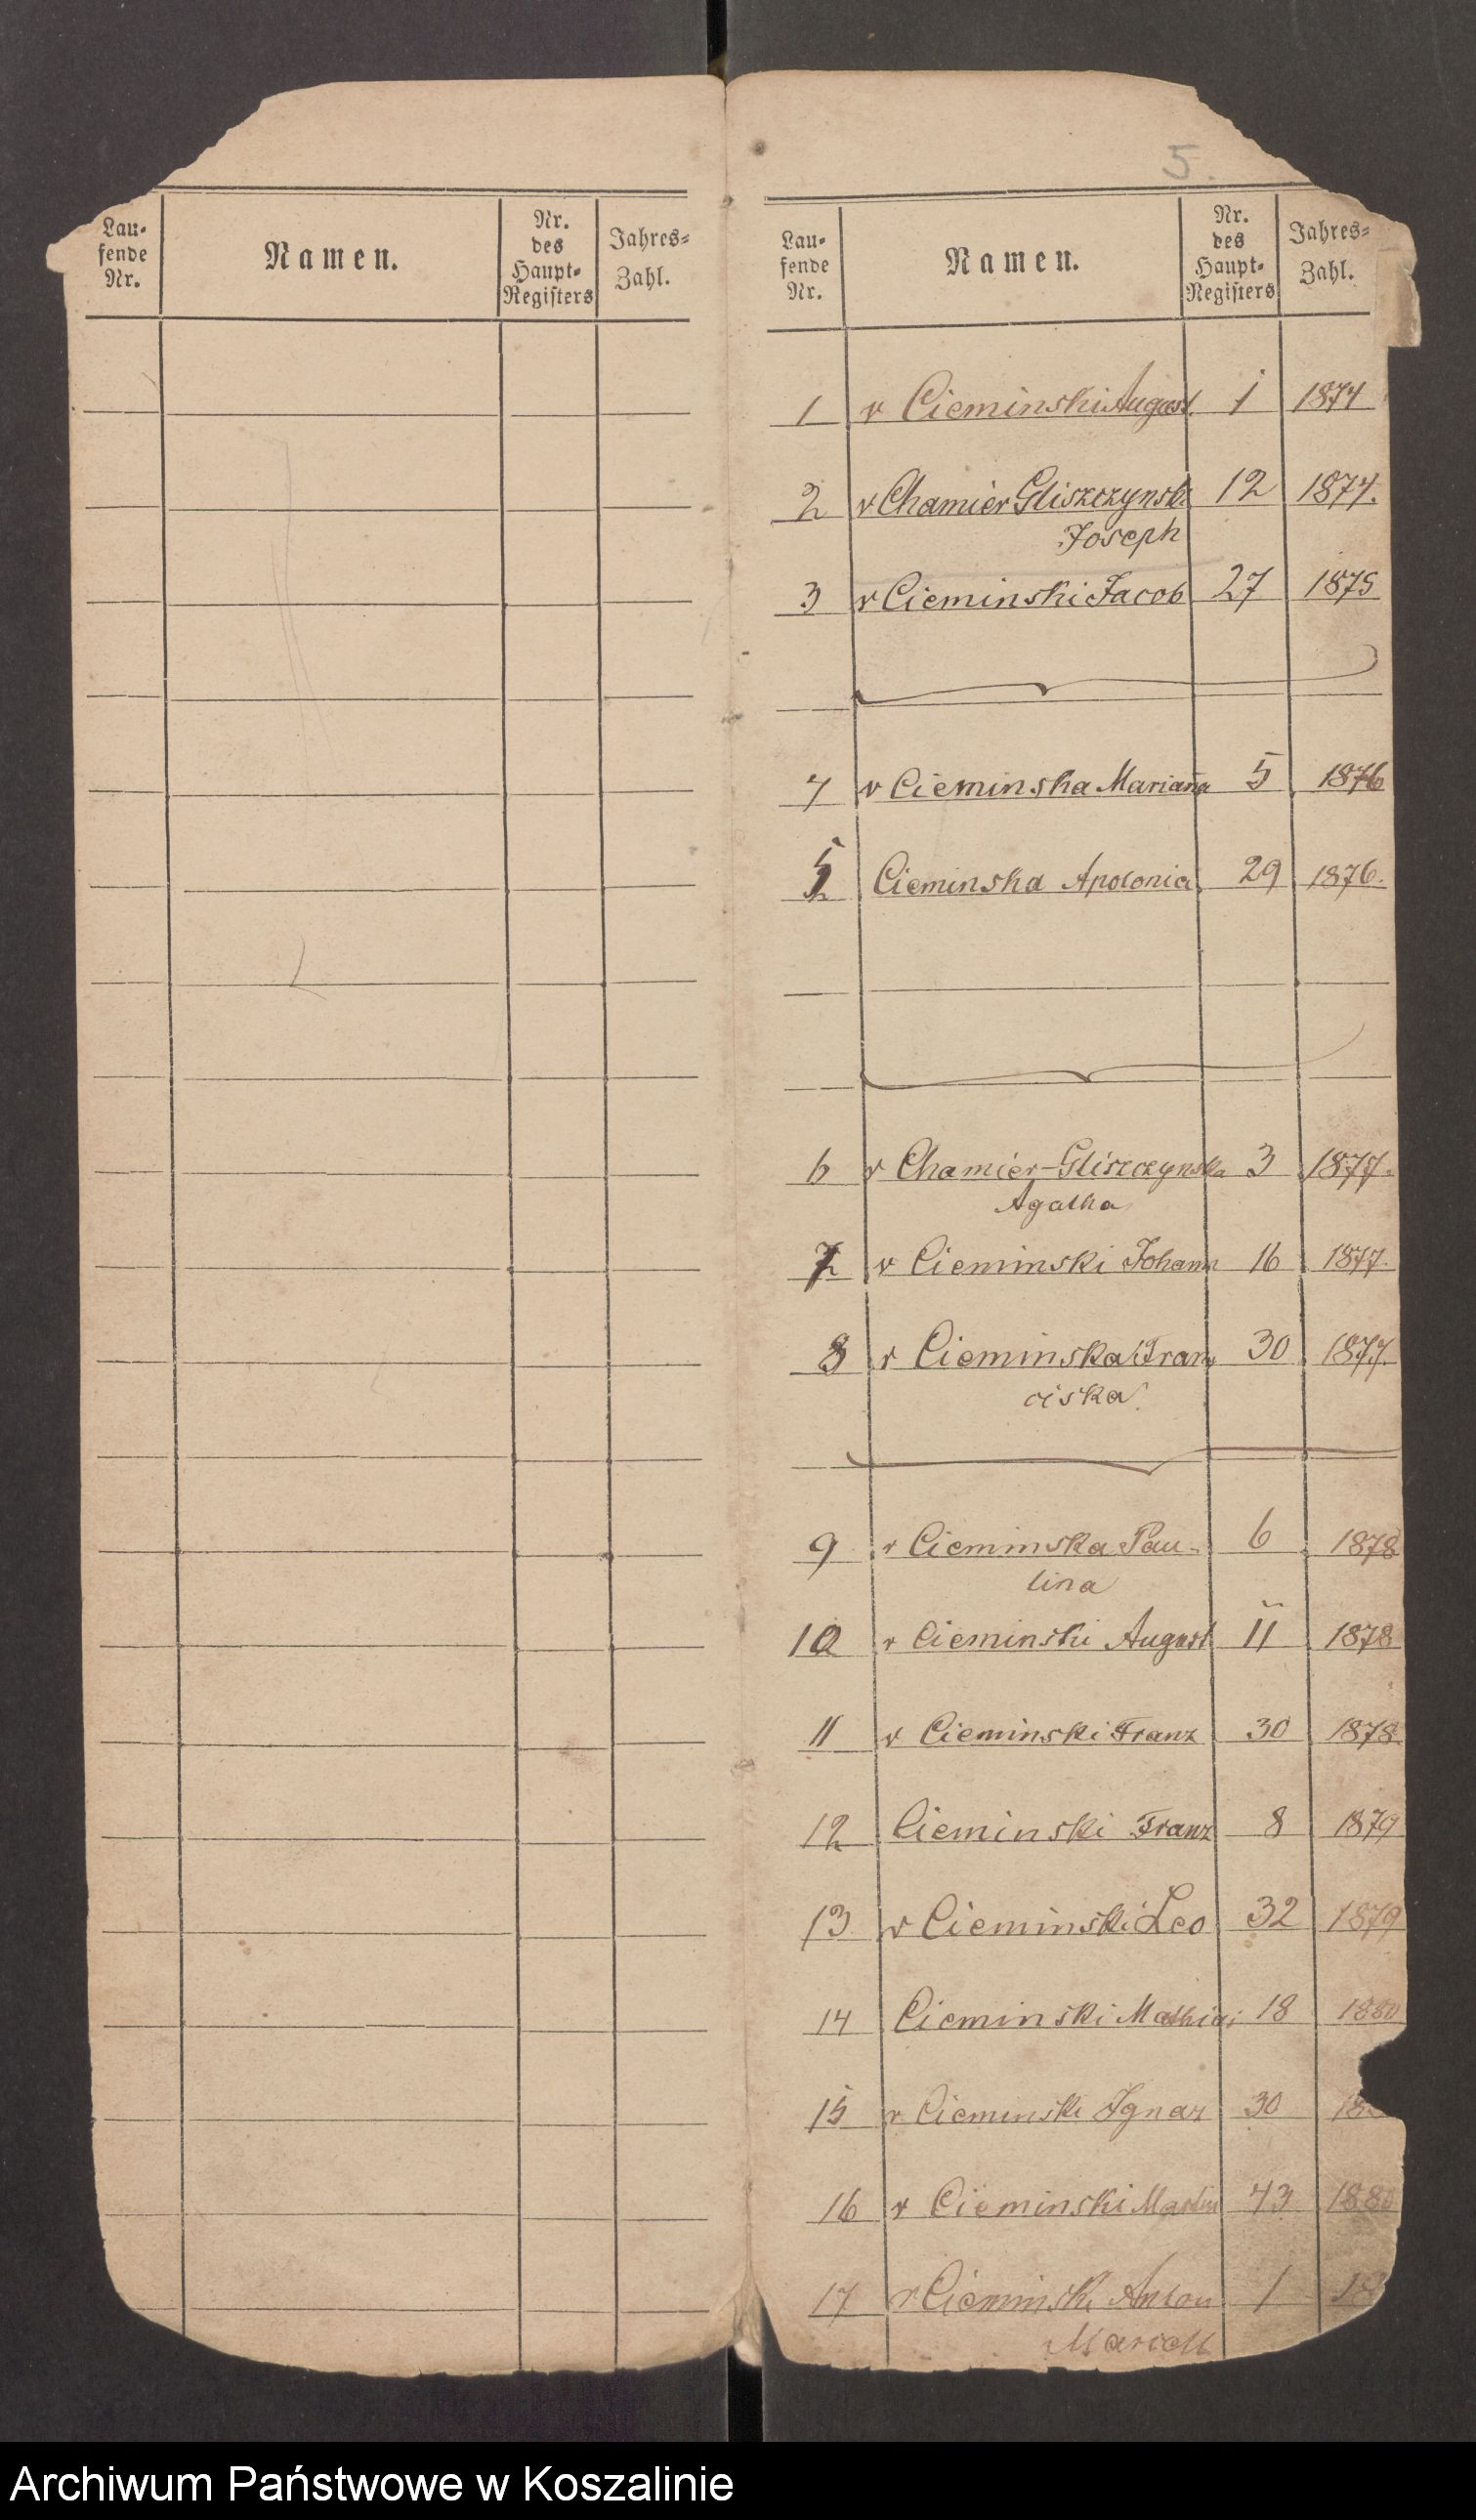 5.
Lau-
fende
Nr.
Namen.
Nr.
des
Haupt-
Registers
Jahres-
Zahl.
Lau-
fende
Nr.
Namen.
Nr.
des
Haupt-
Registers
Jahres-
Zahl.
1 v Cieminski August. 1 1874
2 v Chamier Gliszczynski 12 1874.
Joseph
3 v Cieminski Jacob 27 1875
4 v Cieminska Mariana 5 1876
5 Cieminska Apolonia 29 1876.
6 v Chamier-Gliszczynska 3 1877.
Agatha
7 v Cieminski Johann 16 1877.
8 v Cieminska Fran 30 1877.
ciska
9 v Cieminska Pau- 6 1878
lina
10 v Cieminski August 11 1878
11 v Cieminski Franz 30 1878.
12 Cieminski Franz 8 1879
13 v Cieminski Leo 32 1879
14 Cieminski Mathias 18 1880
15 v Cieminski Ignaz 30 18
16 v Cieminski Martin 43 1880
17 v Cieminski Anton 1 18
Archiwum Państwowe w Koszalinie